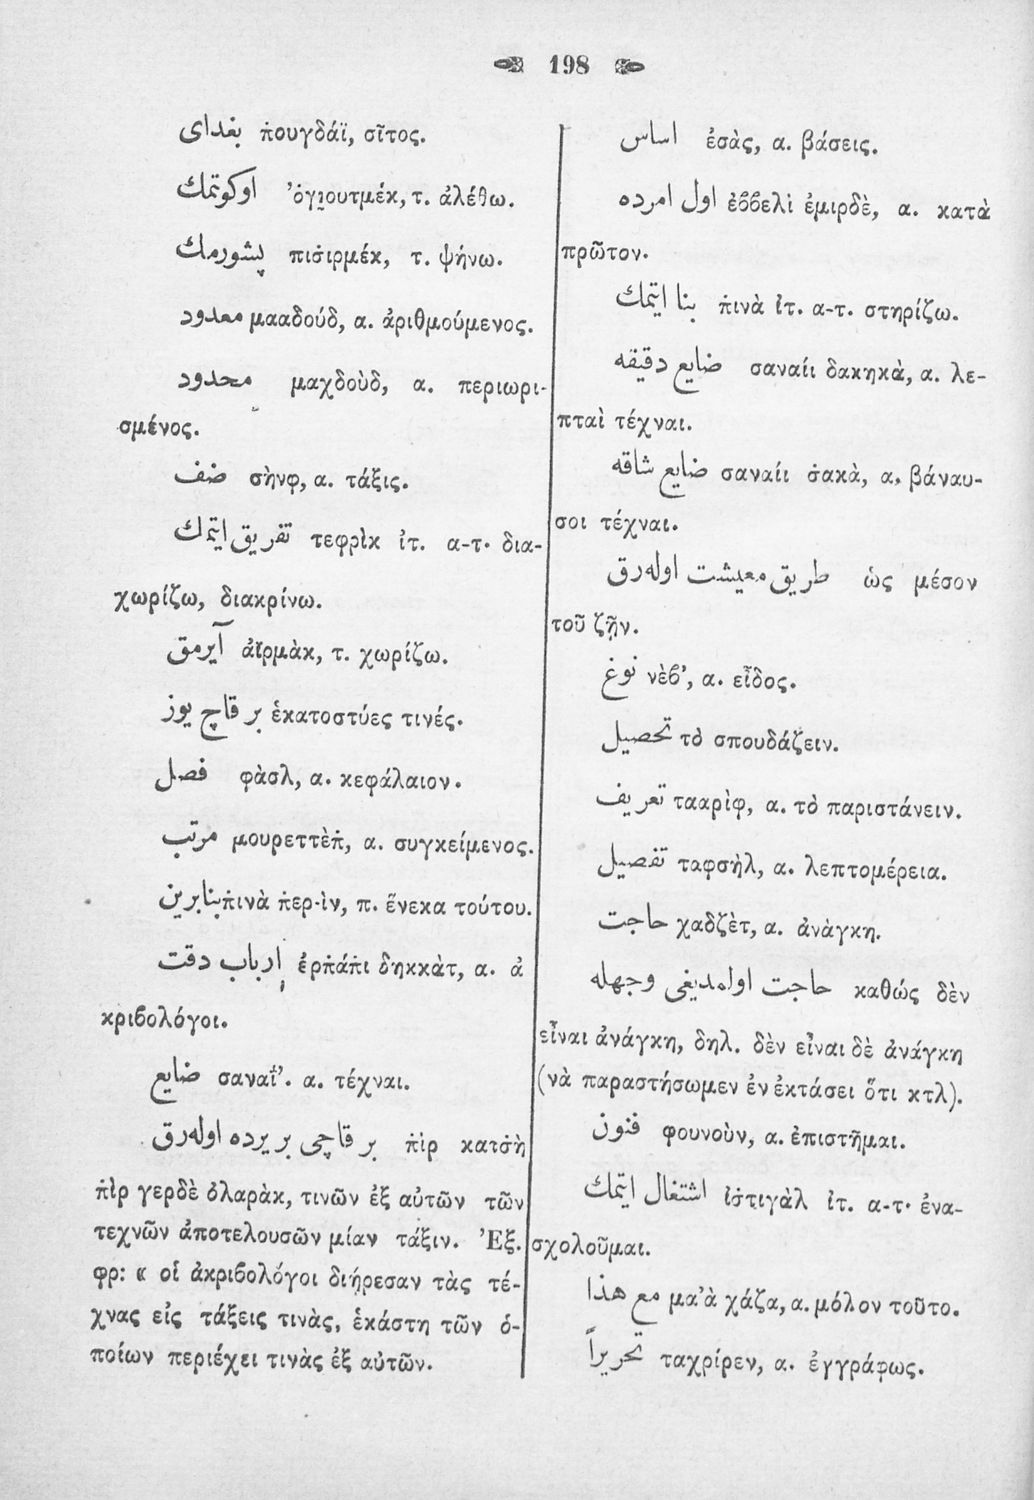 198
بغدای π̇ουγδάϊ, σῖτος.
اوكوتمك ’ὀγιουτμέκ, τ. ἀλέθω.
پشورمك πισ̇ιρμέκ, τ. ψήνω.
معدود μααδούδ, α. ἀριθμούμενος.
محدود μαχδοὺδ, α. περιωρι-
σμένος.
صنف σὴνφ, α. τάξις.
تفریق ایتمك τεφρὶκ ἰτ. α-τ· δια-
χωρίζω, διακρίνω.
آیرمق ἀϊρμὰκ, τ. χωρίζω.
بر قاچ یوز ἑκατοστύες τινές.
فصل φὰσλ, α. κεφάλαιον.
مرتب μουρεττὲπ̇, α. συγκείμενος.
بنابرین π̇ινὰ π̇ερ-ὶν, π. ἕνεκα τούτου.
ارباب دقت ἐρπ̇άπ̇ι δηκκὰτ, α. ἀ
κριϐολόγοι.
صنایع σαναΐ’. α. τέχναι.
بر قاچی بر یرده اوله‌رق π̇ὶρ κατσ̇ὴ
π̇ὶρ γερδὲ ὀλαρὰκ, τινῶν ἐξ αὐτῶν τῶν
τεχνῶν ἀποτελουσῶν μίαν τάξιν. Ἐξ.
φρ: « οἱ ἀκριϐολόγοι διῄρεσαν τὰς τέ-
χνας εἰς τάξεις τινὰς, ἑκάστη τῶν ὁ-
ποίων περιέχει τινὰς ἐξ αὐτῶν.
اساس ἐσὰς, α. βάσεις.
اول امرده ἐϐϐελὶ ἐμιρδὲ, α. κατὰ
πρῶτον.
بنا ایتمك π̇ινὰ ἰτ. α-τ. στηρίζω.
صنایع دقیقه σαναίι δακηκὰ, α. λε-
πταὶ τέχναι.
صنایع شاقه σαναίι σ̇ακὰ, α. βάναυ-
σοι τέχναι.
طریق معیشت اوله‌رق ὡς μέσον
τοῦ ζῇν.
نوغ νὲϐ’, α. εἶδος.
تحصیل τὸ σπουδάζειν.
تعریف τααρὶφ, α. τὸ παριστάνειν.
تفصیل ταφσὴλ, α. λεπτομέρεια.
حاجت χαδζὲτ, α. ἀνὰγκη.
حاجت اولمدیغی وجهله καθώς δὲν
εἶναι ἀνάγκη, δηλ. δὲν εἶναι δὲ ἀνάγκη
(νὰ παραστήσωμεν ἐν ἐκτάσει ὅτι κτλ).
فنون φουνοὺν, α. ἐπιστῆμαι.
اشتغال ایتمك ἰσ̇τιγὰλ ἰτ. α-τ· ἐνα-
σχολοῦμαι.
مع هذا μα’ὰ χάζα, α. μόλον τοῦτο.
تحریراً ταχρίρεν, α. ἐγγράφως.